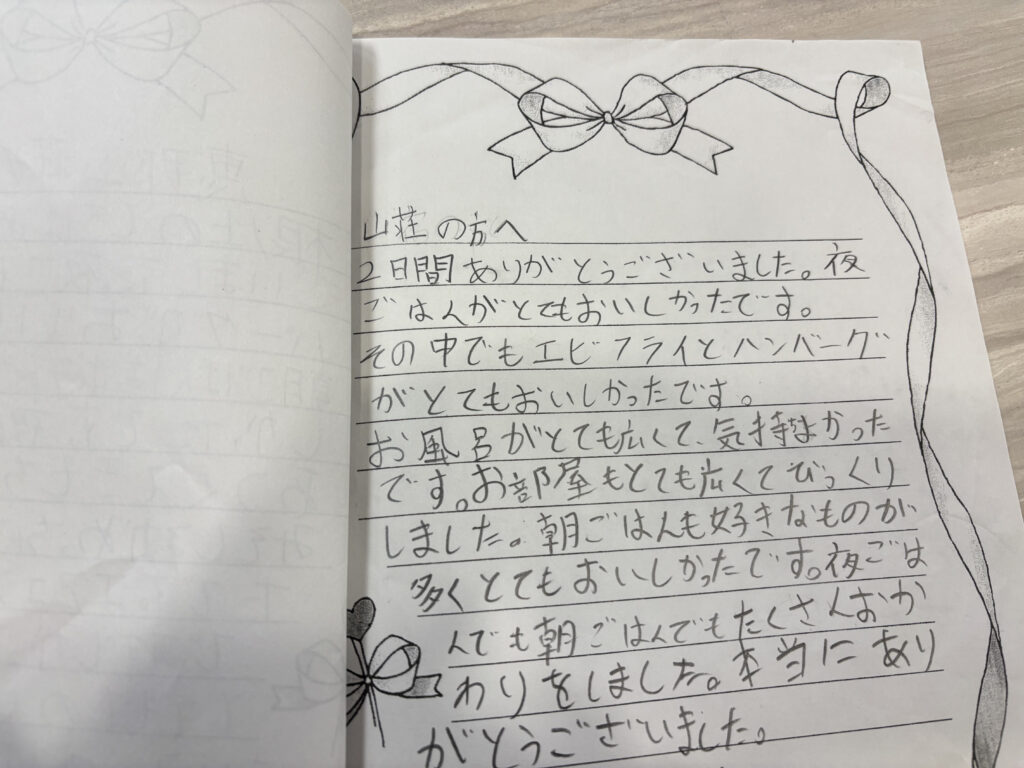 山荘の方へ
2日間ありがとうございました。夜
ごはんがとてもおいしかったです。
その中でもエビフライとハンバーグ
がとてもおいしかったです。
お風呂がとても広くて、気持よかった
です。お部屋もとても広くてびっくり
しました。朝ごはんも好きなものが
多くとてもおいしかったです。夜ごは
んでも朝ごはんでもたくさんおか
わりをしました。本当にあり
がとうございました。